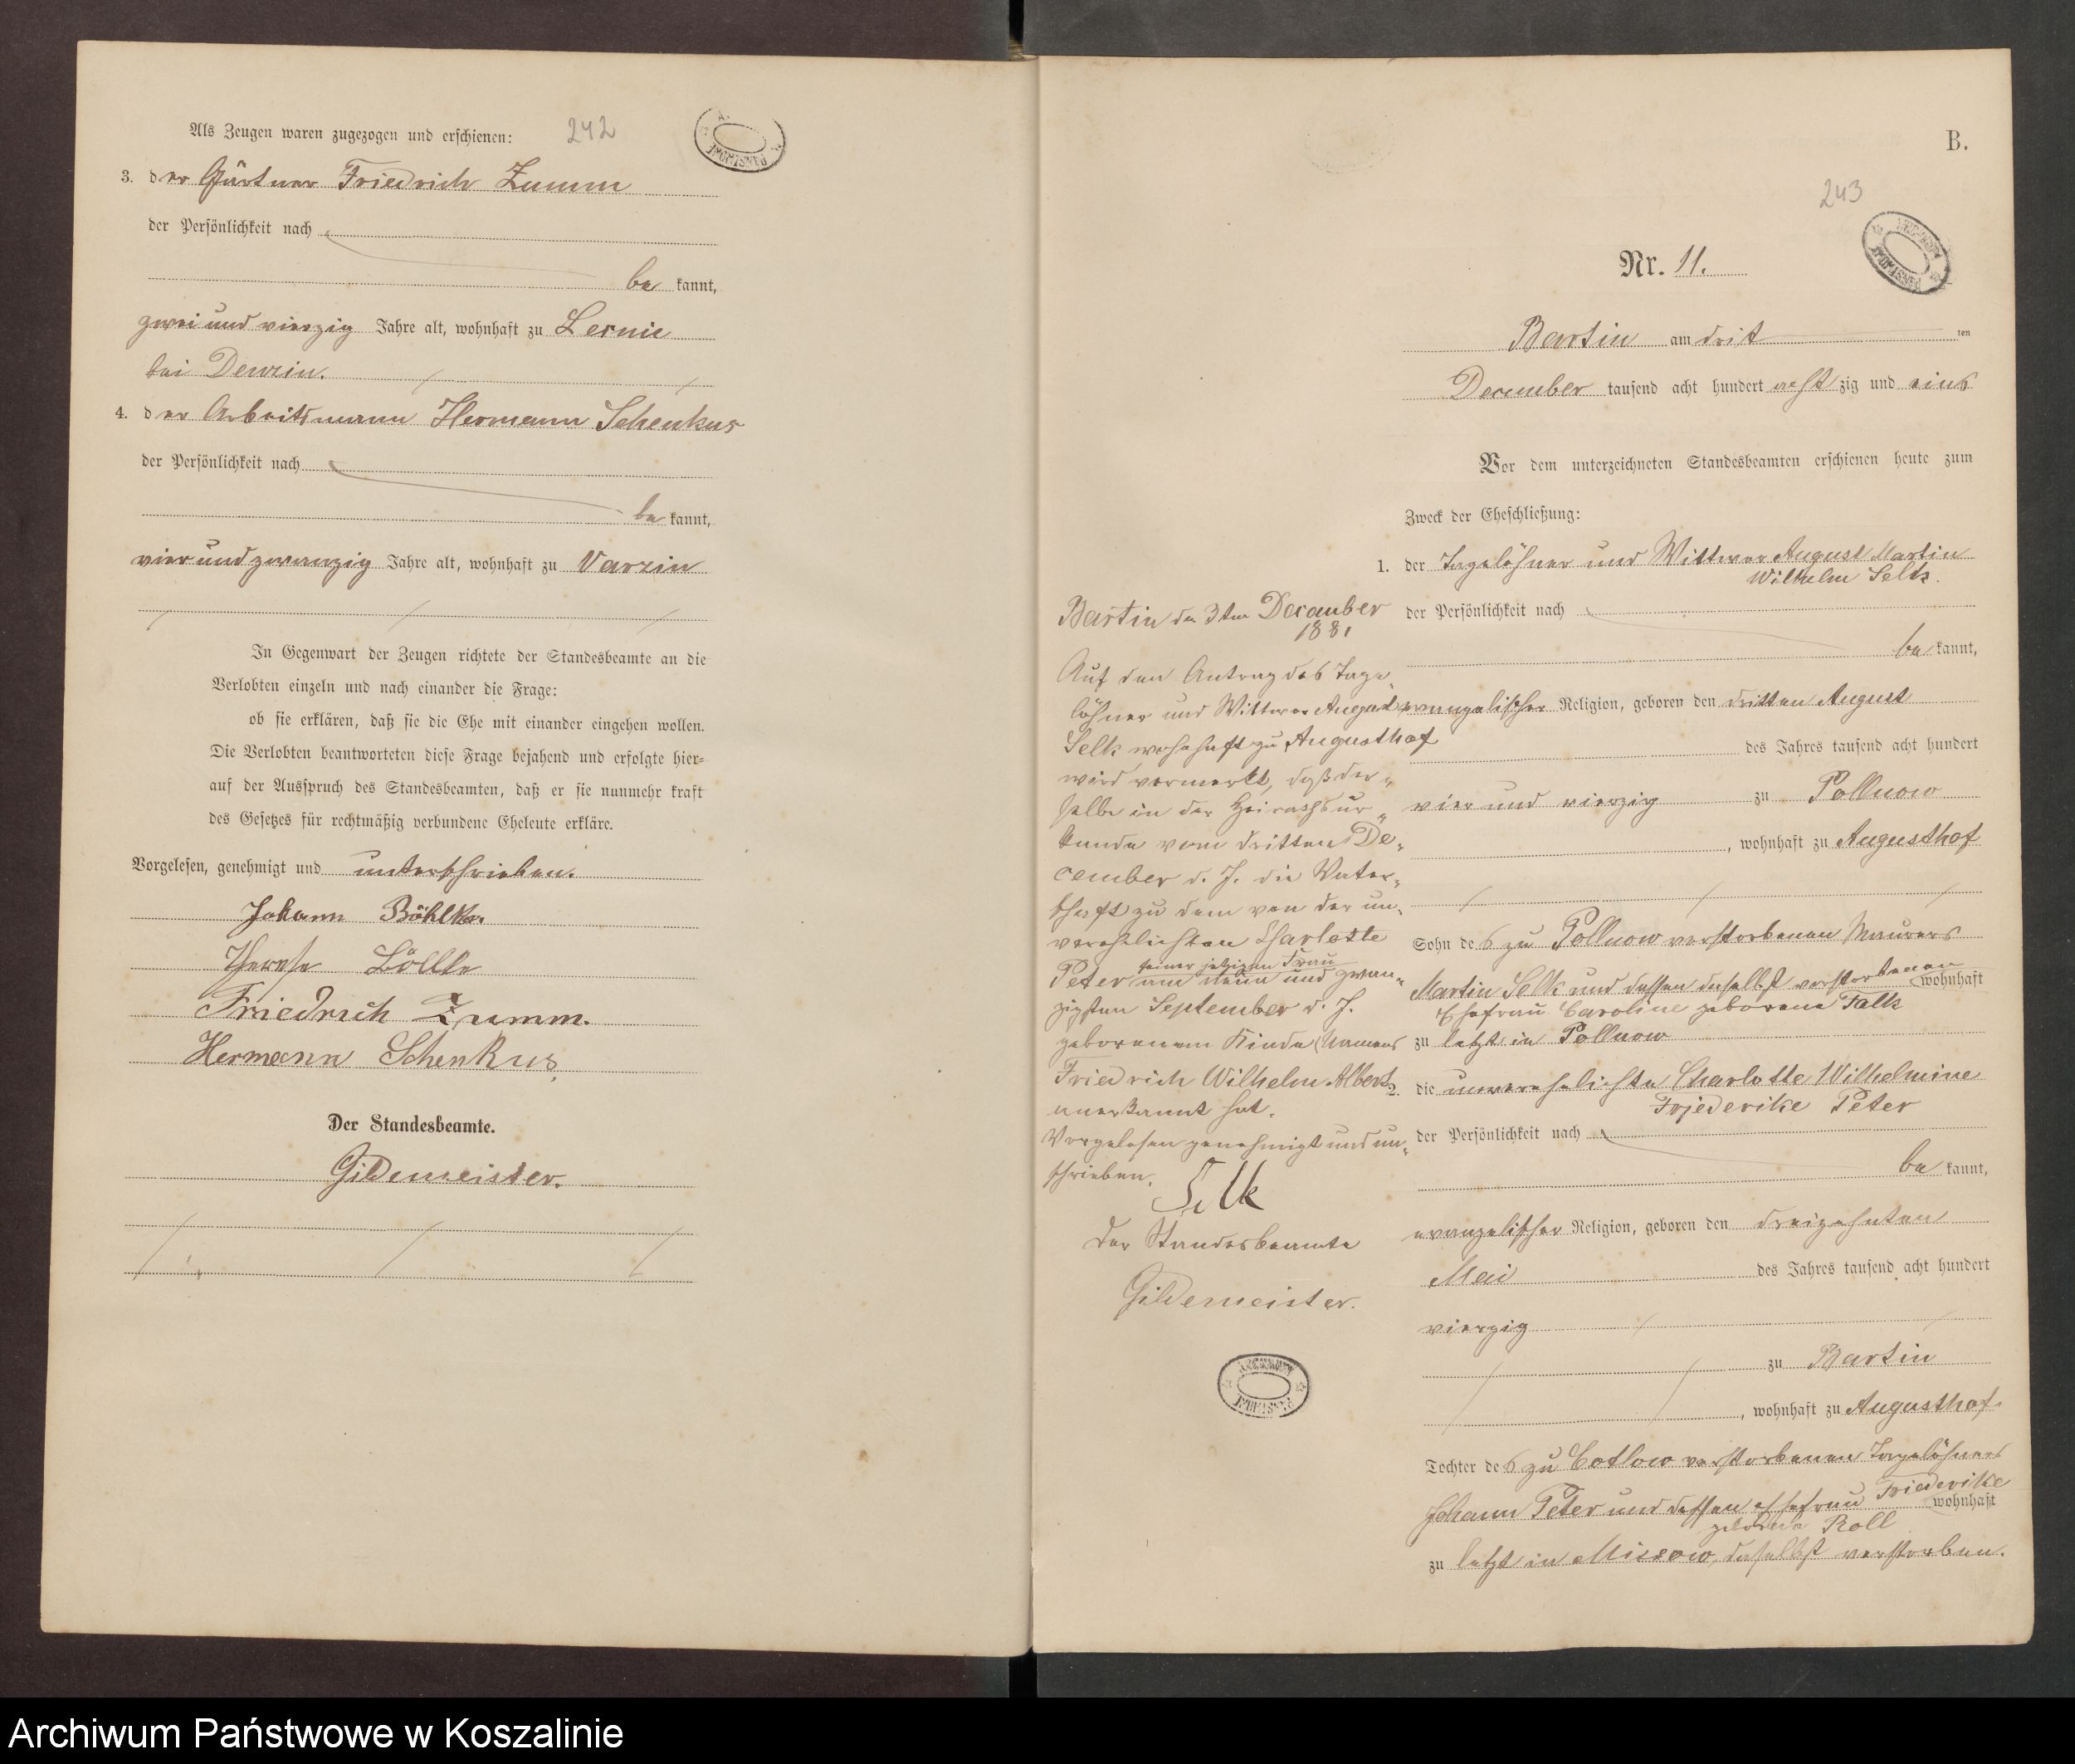 Als Zeugen waren zugezogen und erschienen:
242
3. der Gärtner Friedrich Zumm
der Persönlichkeit nach
be kannt,
zwei und vierzig Jahre alt, wohnhaft zu
bei
4. der Arbeitsmann Hermann Schenkus
der Persönlichkeit nach
be kannt,
vier und zwanzig Jahre alt, wohnhaft zu Varzin
In Gegenwart der Zeugen richtete der Standesbeamte an die
Verlobten einzeln und nach einander die Frage:
ob sie erklären, daß sie die Ehe mit einander eingehen wollen.
Die Verlobten beantworteten diese Frage bejahend und erfolgte hier-
auf der Ausspruch des Standesbeamten, daß er sie nunmehr kraft
des Gesetzes für rechtmäßig verbundene Eheleute erkläre.
Vorgelesen, genehmigt und unterschrieben.
Johann Böhlke.
Therese
Friedrich Zumm.
Hermann Schenkus
Der Standesbeamte.
Gildemeister.
B.
243
Nr. 11.
Bartin am drit ten
December tausend acht hundert acht zig und eins
Vor dem unterzeichneten Standesbeamten erschienen heute zum
Zweck der Eheschließung:
1. der Tagelöhner und Wittwer August Martin
Wilhelm Selk.
der Persönlichkeit nach
be kannt,
evangelischer Religion, geboren den dritten August
des Jahres tausend acht hundert
vier und vierzig zu Pollnow
, wohnhaft zu Augusthof
Sohn des zu Pollnow verstorbenen Maurers
Martin Selk und dessen daselbst verstorbenen
wohnhaft
Ehefrau Caroline geborene Falk
zu letzt in Pollnow
2. die unverehelichte Charlotte Wilhelmine
Friederike Peter
der Persönlichkeit nach
be kannt,
evangelischer Religion, geboren den dreizehnten
Mai des Jahres tausend acht hundert
vierzig
zu Bartin
, wohnhaft zu Augusthof
Tochter des zu Cotlow verstorbenen Tagelöhners
Johann Peter und dessen Ehefrau Friederike
wohnhaft
geborene Roll
zu letzt in Missow, daselbst verstorben.
Bartin den 3ten December
1881
Auf den Antrag des Tage-
löhner und Wittwer August
Selk wohnhaft zu Augusthof
wird vermerkt, daß der-
selbe in der Heirathsur-
kunde vom dritten De-
cember d. J. die Vater-
schaft zu dem von der un-
verehelichten Charlotte
seiner jetzigen Frau
Peter am neun und zwan-
zigsten September d. J.
geborenen Kinde Namens
Friedrich Wilhelm Albert
anerkannt hat.
Vorgelesen genehmigt und un-
schrieben.
Selk
Der Standesbeamte
Gildemeister.
Archiwum Państwowe w Koszalinie